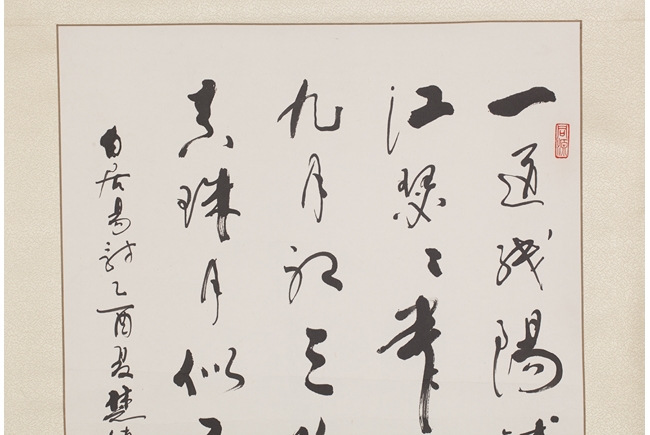 一道残陽
江瑟々半
九月初三
真珠月似
白居易詩乙酉夏